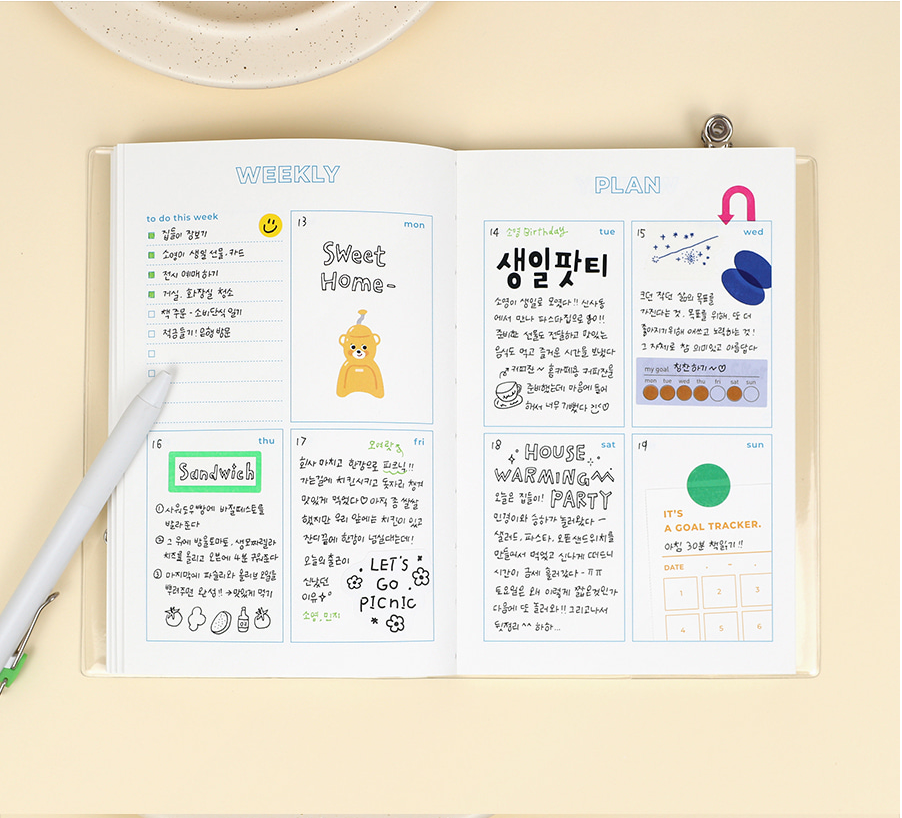 WEEKLY
to do this week
집들이 장보기
소영이 생일 선물, 카드
전시 예매하기
거실, 화장실 청소
책 주문 - 소비단식 일기
적금들기! 은행 방문
13 mon
SWeet
Home-
16 thu
Sandwich
① 사워도우빵에 바질페스토를
발라준다
② 그 위에 방울토마토, 생모짜렐라
치즈를 올리고 오븐에 4분 구워준다
③ 마지막에 파슬리와 올리브 오일을
뿌려주면 완성!! →맛있게 먹기
17 fri
회사 마치고 한강으로 피크닉!!
가는길에 치킨시키고 돗자리 챙겨
맛있게 먹었다♡ 아직 좀 쌀쌀
했지만 우리 앞에는 치킨이 있고
잔디끝에 한강이 넘실대는데!
오늘의 출근이
신났던
이유
소영, 민지
LET'S
GO
PICNIC
PLAN
14 소영 Birthday tue
생일팟티
소영이 생일로 모였다!! 신사동
에서 만나 파스타집으로 go!!
준비한 선물도 전달하고 맛있는
음식도 먹고 즐거운 시간을 보냈다
커피잔 ~ 홈카페용 커피잔을
준비했는데 마음에 들어
해서 너무 기뻤다
15 wed
크던 작던 삶의 목표를
가진다는 것, 목표를 위해, 또 더
나아지기 위해 애쓰고 노력하는 것!
그 자체로 참 의미있고 아름답다
my goal 칭찬하기~♡
mon tue wed thu fri sat sun
18 sat
HOUSE
WARMING
PARTY
오늘은 집들이!
민경이와 승하가 놀러왔다 -
샐러드, 파스타, 오픈샌드위치를
만들어서 먹었고 신나게 떠드니
시간이 금세 흘러갔다 - ㅠㅠ
토요일은 왜 이렇게 짧은것인가
다음에 또 놀러와!! 그리고나서
뒷정리 ^^ 하하...
19 sun
IT'S
A GOAL TRACKER.
아침 30분 책읽기!!
DATE
1 2 3
4 5 6